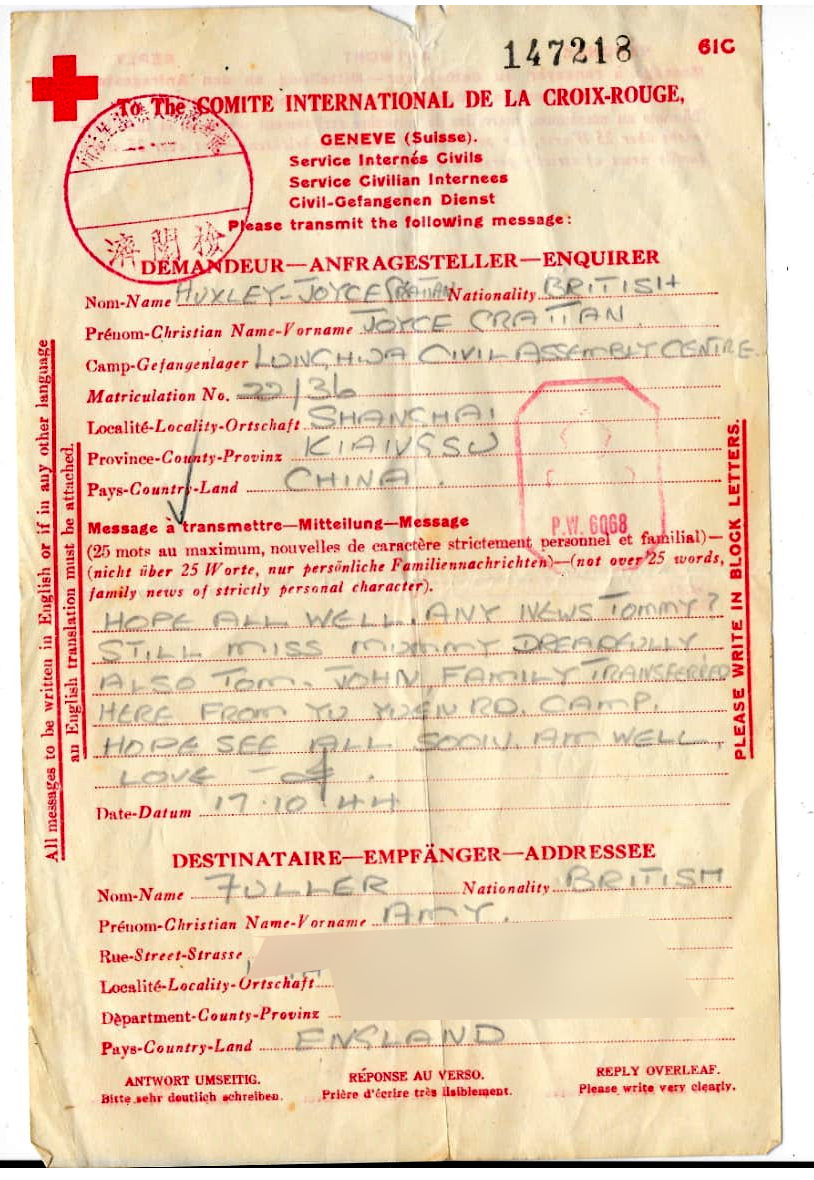 147218
61C
To The COMITE INTERNATIONAL DE LA CROIX-ROUGE,
GENEVE (Suisse).
Service Internés Civils
Service Civilian Internees
Civil-Gefangenen Dienst
Please transmit the following message:
濟開檢
DEMANDEUR—ANFRAGESTELLER—ENQUIRER
Nom-Name HUXLEY-JOYCE Nationality BRITISH
Prénom-Christian Name-Vorname JOYCE CRATTAN
Camp-Gefangenlager LUNGHWA CIVIL ASSEMBLY CENTRE
Matriculation No. 22/36
Localité-Locality-Ortschaft SHANGHAI
Province-County-Provinz KIANGSU
Pays-Country-Land CHINA.
Message à transmettre—Mitteilung—Message
P.W. 6068
(25 mots au maximum, nouvelles de caractère strictement personnel et familial)—
(nicht über 25 Worte, nur persönliche Familiennachrichten)—(not over 25 words,
family news of strictly personal character).
HOPE ALL WELL. ANY NEWS TOMMY?
STILL MISS MUMMY DREADFULLY
ALSO TOM. JOHN FAMILY TRANSFERRED
HERE FROM YU YUEN RD. CAMP.
HOPE SEE ALL SOON. AM WELL,
LOVE —
Date-Datum 17.10.44
DESTINATAIRE—EMPFÄNGER—ADDRESSEE
Nom-Name FULLER Nationality BRITISH
Prénom-Christian Name-Vorname AMY.
Rue-Street-Strasse
Localité-Locality-Ortschaft
Dèpartment-County-Provinz
Pays-Country-Land ENGLAND
ANTWORT UMSEITIG. RÉPONSE AU VERSO. REPLY OVERLEAF.
Bitte sehr deutlich schreiben. Prière d'écrire très lisiblement. Please write very clearly.
All messages to be written in English or if in any other language
an English translation must be attached.
PLEASE WRITE IN BLOCK LETTERS.